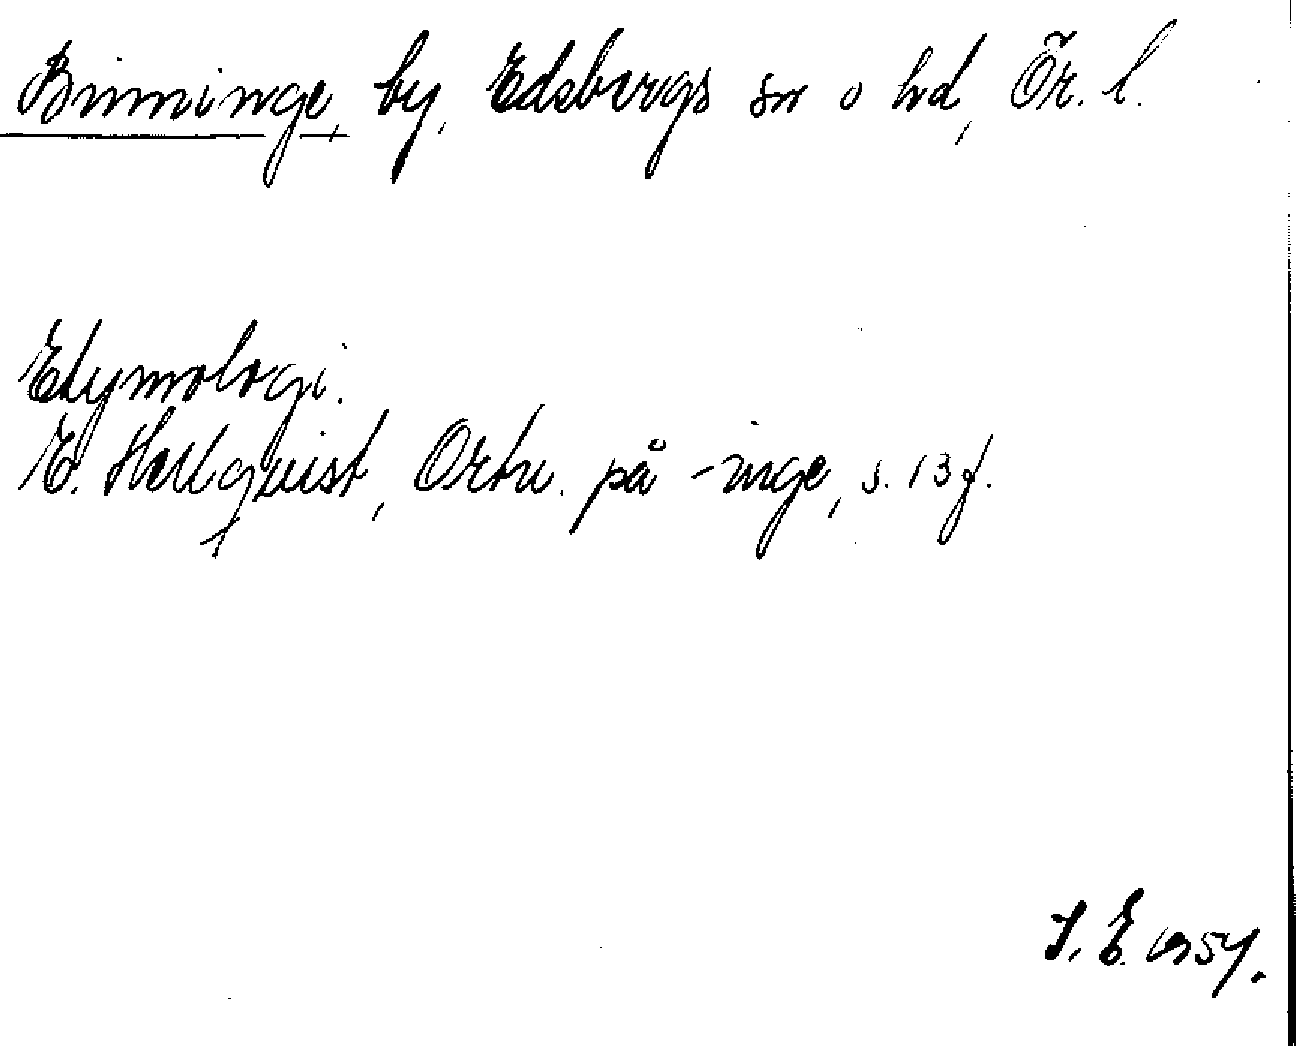 Binninge, by, Edsbergs sn o hd, Ör. l.
Etymologi.
E. Hellquist, Ortn. på -inge, s. 13 f.
I. E. 1954.